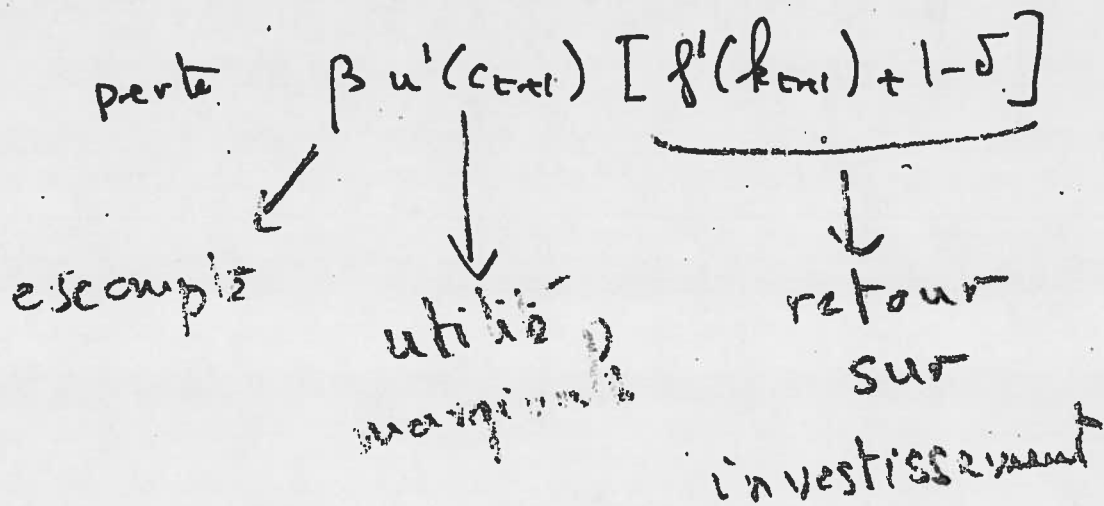 perte β u'(c_{t+1}) [f'(k_{t+1}) + 1-δ]
escompte
utilité
marginale
retour
sur
investissement